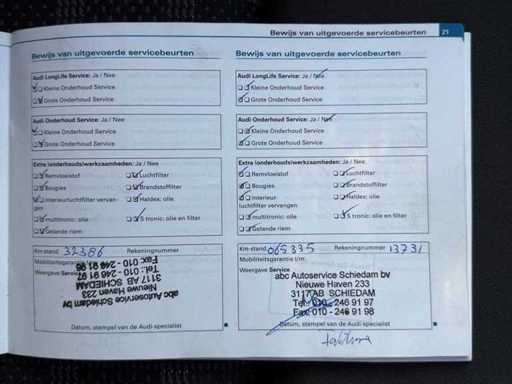 Bewijs van uitgevoerde servicebeurten 21
Bewijs van uitgevoerde servicebeurten
Audi LongLife Service: Ja / Nee
Kleine Onderhoud Service
Grote Onderhoud Service
Audi Onderhoud Service: Ja / Nee
Kleine Onderhoud Service
Grote Onderhoud Service
Extra (onderhouds)werkzaamheden: Ja / Nee
Remvloeistof Luchtfilter
Bougies Brandstoffilter
Interieurluchtfilter vervan- Haldex: olie
gen
multitronic: olie S tronic: olie en filter
Getande riem
Km-stand 32386 Rekeningnummer
Mobiliteitsgarantie
Weergave Service
abc Autoservice Schiedam bv
Nieuwe Haven 233
3117 AB SCHIEDAM
Tel.: 010 - 246 91 97
Fax: 010 - 246 91 98
Datum, stempel van de Audi-specialist
Bewijs van uitgevoerde servicebeurten
Audi LongLife Service: Ja / Nee
Kleine Onderhoud Service
Grote Onderhoud Service
Audi Onderhoud Service: Ja / Nee
Kleine Onderhoud Service
Grote Onderhoud Service
Extra (onderhouds)werkzaamheden: Ja / Nee
Remvloeistof Luchtfilter
Bougies Brandstoffilter
Interieur Haldex: olie
luchtfilter vervangen
multitronic: olie S tronic: olie en filter
Getande riem
Km-stand 065335 Rekeningnummer 13731
Mobiliteitsgarantie t/m:
Weergave Service
abc Autoservice Schiedam bv
Nieuwe Haven 233
3117 AB SCHIEDAM
Tel: 010 - 246 91 97
Fax: 010 - 246 91 98
Datum, stempel van de Audi-specialist